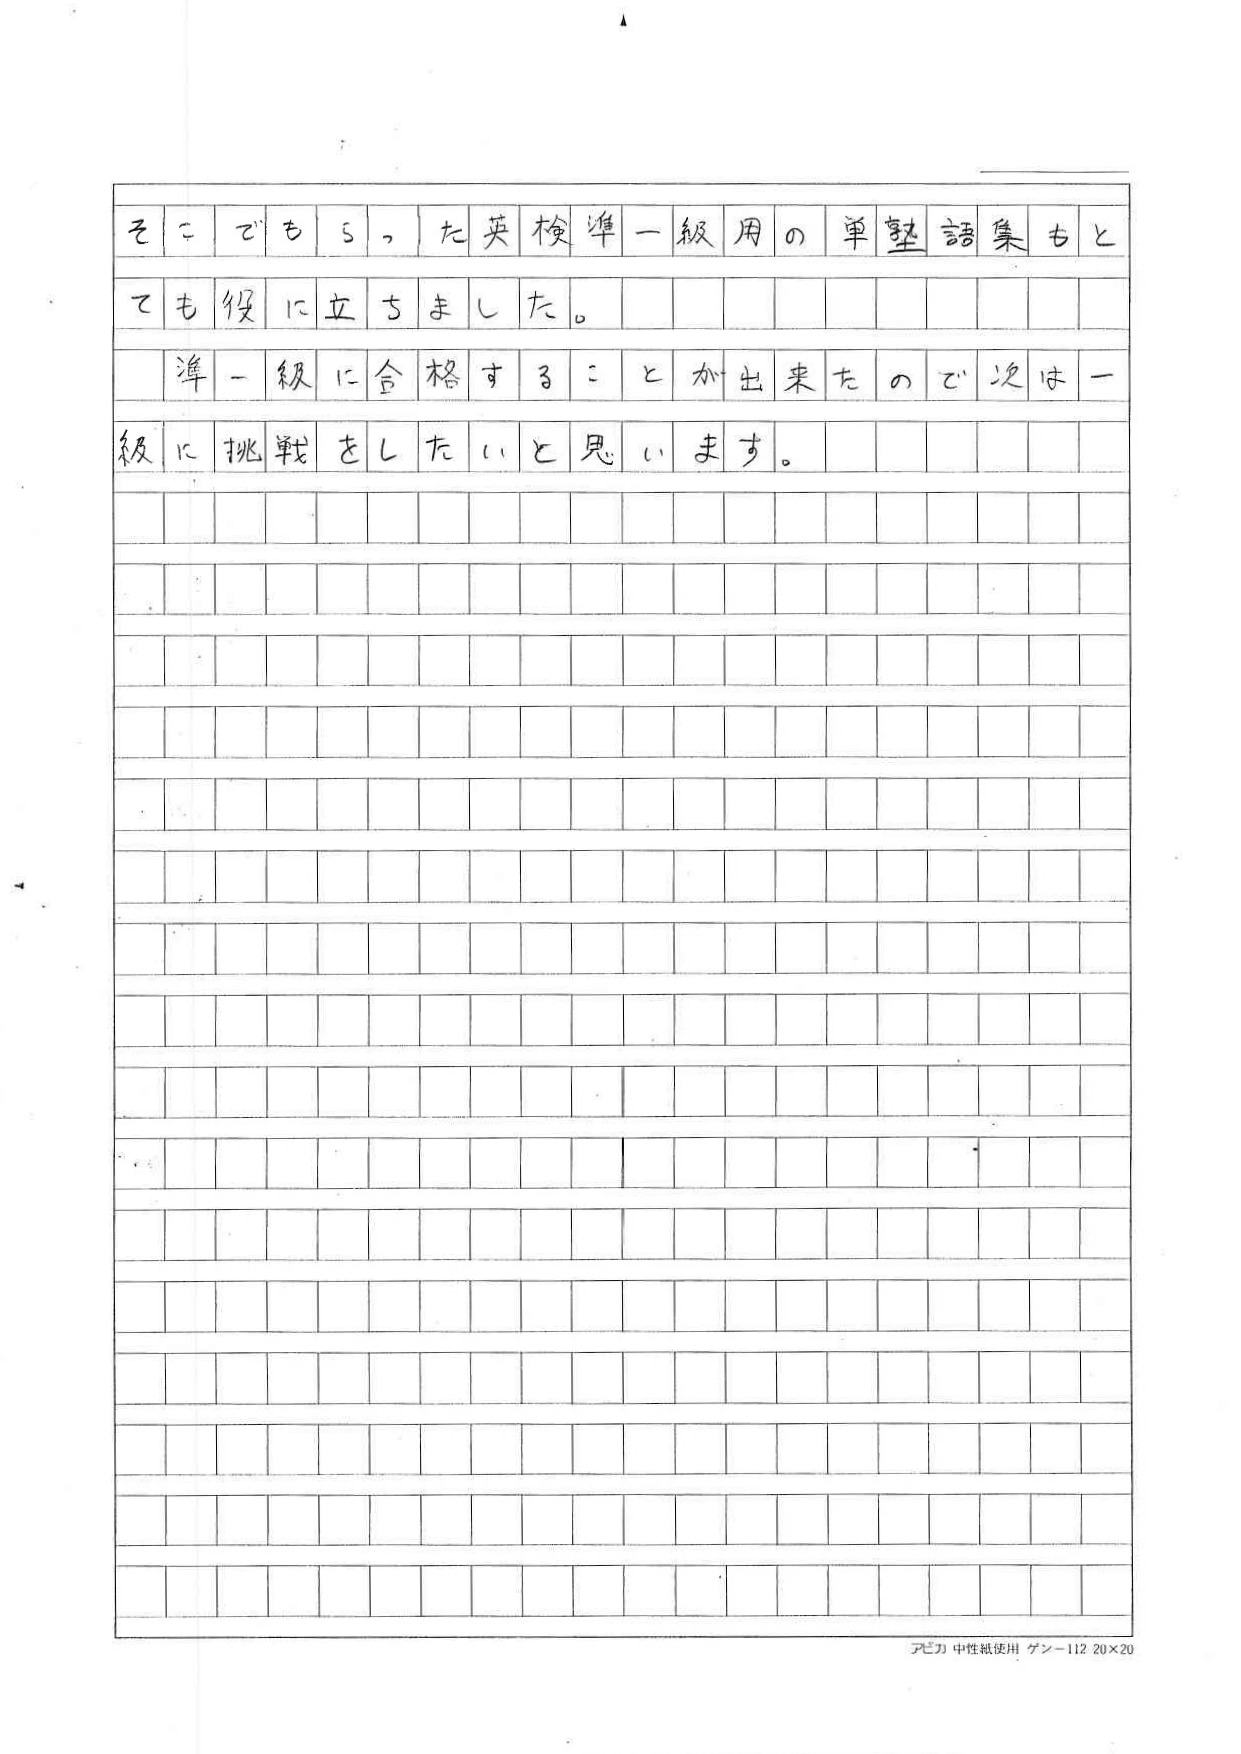 そこでもらった英検準一級用の単塾語集もと
ても役に立ちました。
　準一級に合格することが出来たので次は一
級に挑戦をしたいと思います。
アピカ 中性紙使用 ゲンー112 20×20